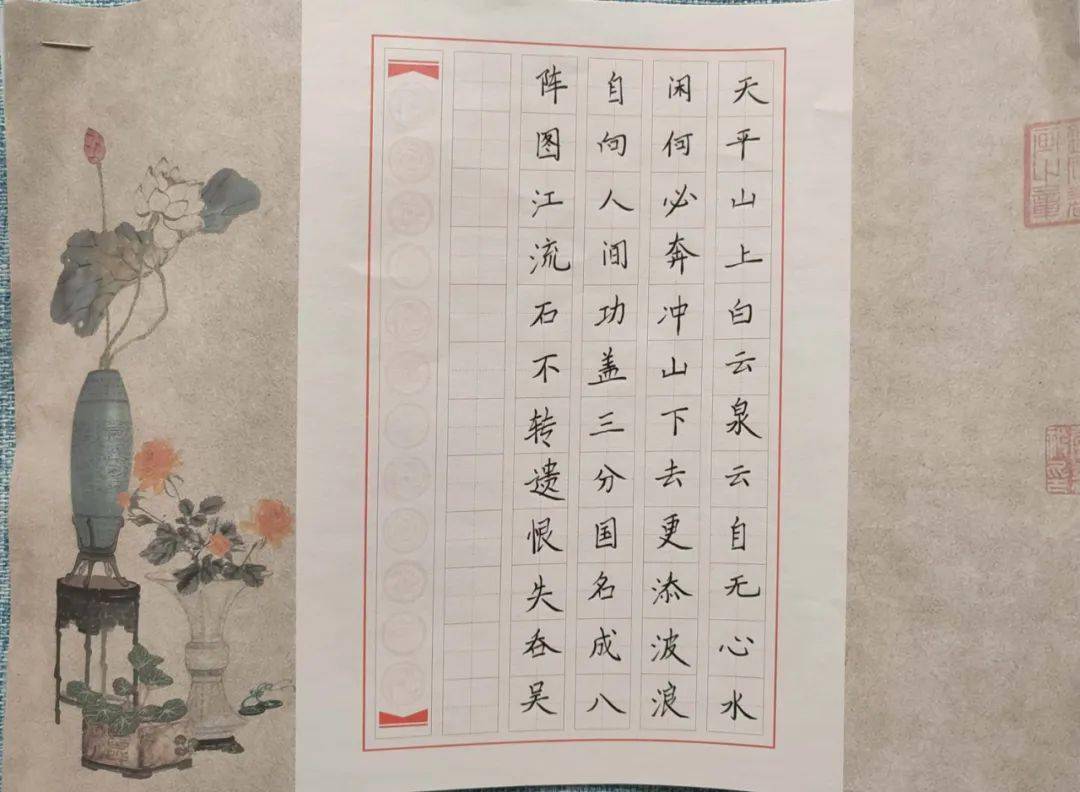 天平山上白云泉云自无心水
闲何必奔冲山下去更添波浪
自向人间功盖三分国名成八
阵图江流石不转遗恨失吞吴